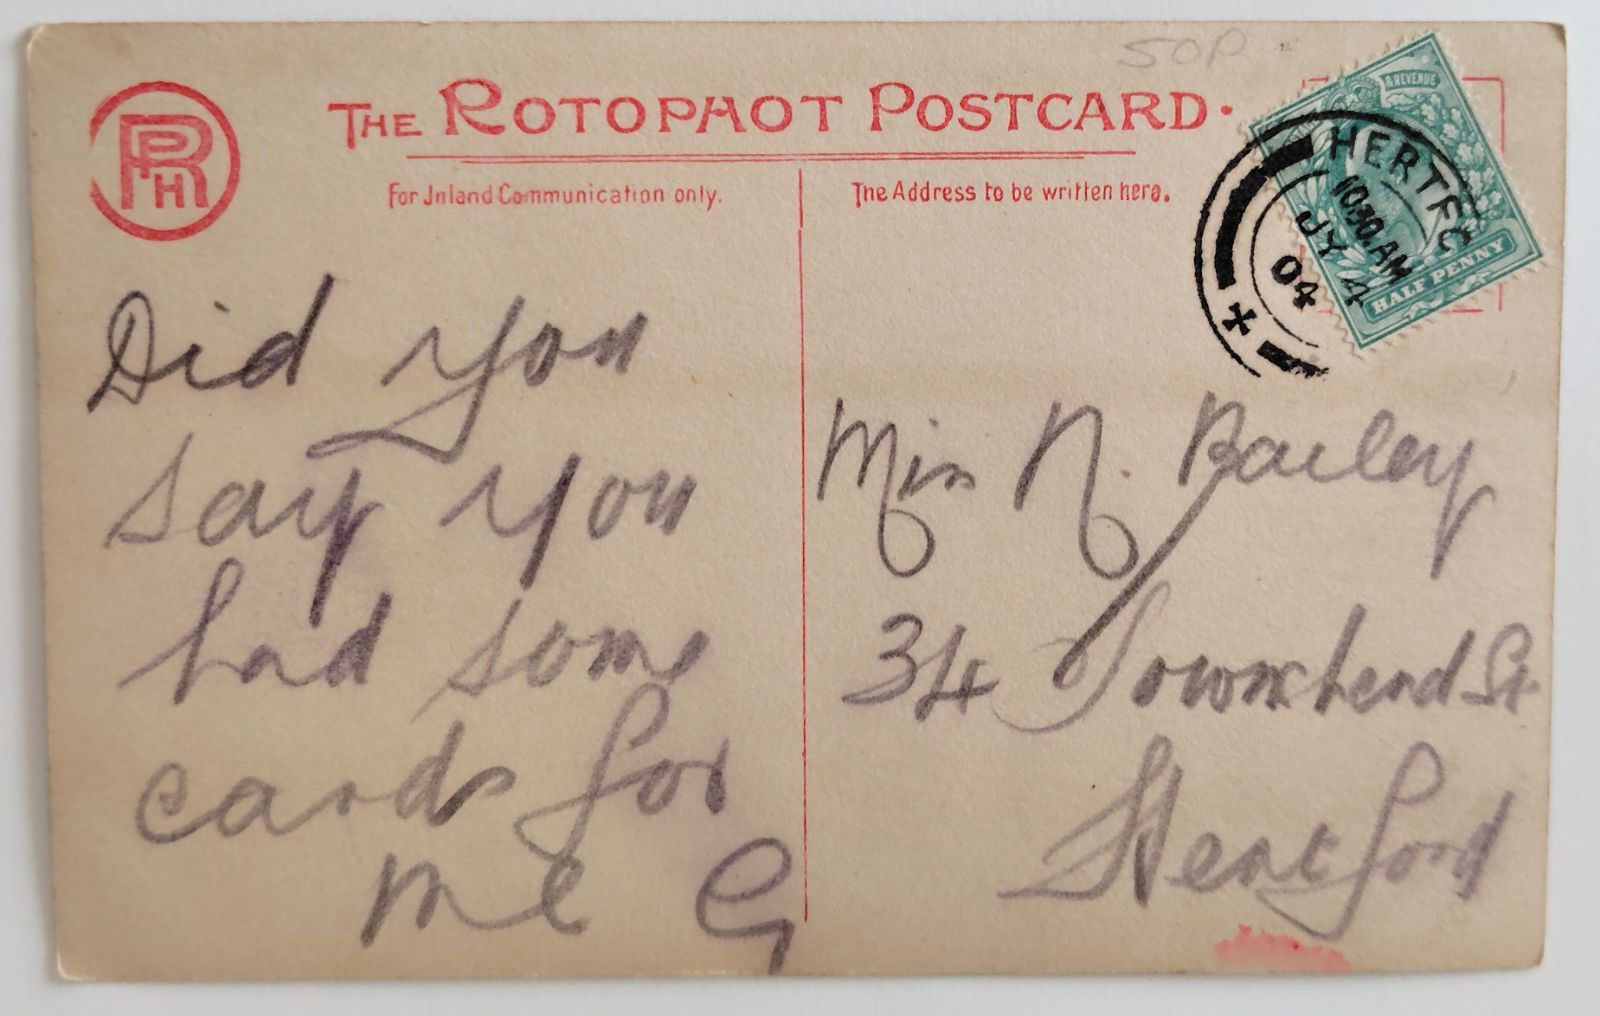 50P
RPH
THE ROTOPHOT POSTCARD.
For Inland Communication only.
The Address to be written here.
& REVENUE
HALF PENNY
HERTFO
10.30.AM
JY 4
04
Did you
say you
had some
cards for
me G
Miss N. Bailey
34 Townshend St
Hertford